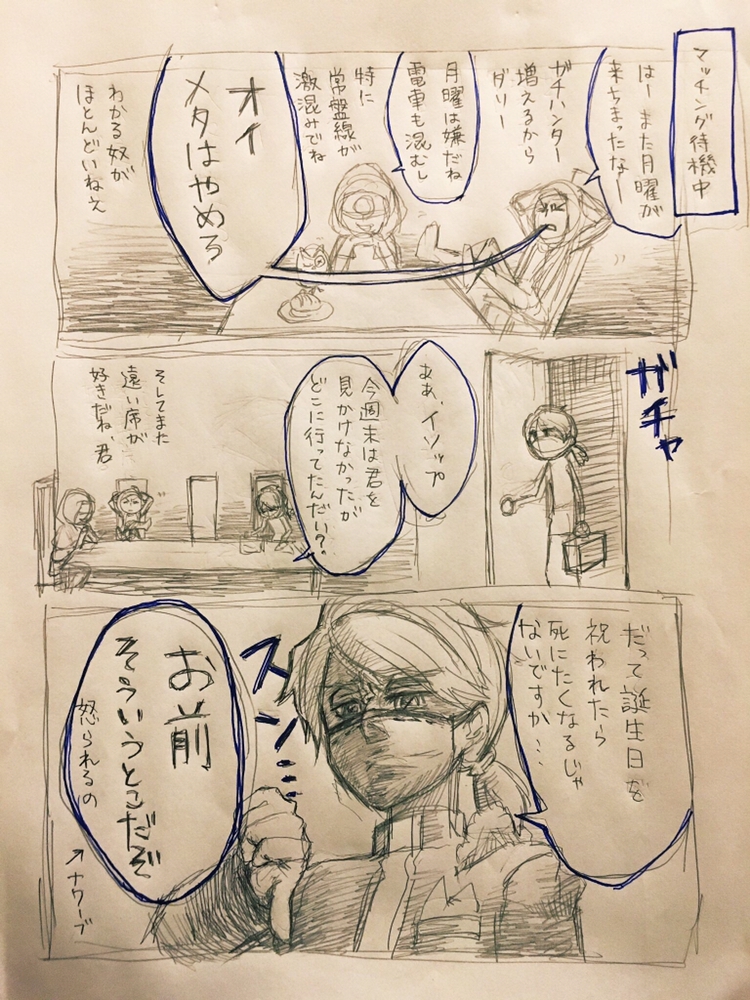 マッチング待機中
はーまた月曜が
来ちまったなー
ガチハンター
増えるから
ダリー
月曜は嫌だね
電車も混むし
特に
常盤線が
激混みでね
オイ
メタはやめろ
わかる奴が
ほとんどいねえ
ガチャ
ああ、イソップ
今週末は君を
見かけなかったが
どこに行ってたんだい?
そしてまた
遠い席が
好きだね、君
だって誕生日を
祝われたら
死にたくなるじゃ
ないですか…
スン…
お前
そういうとこだぞ
怒られるの
↑ナワーブ